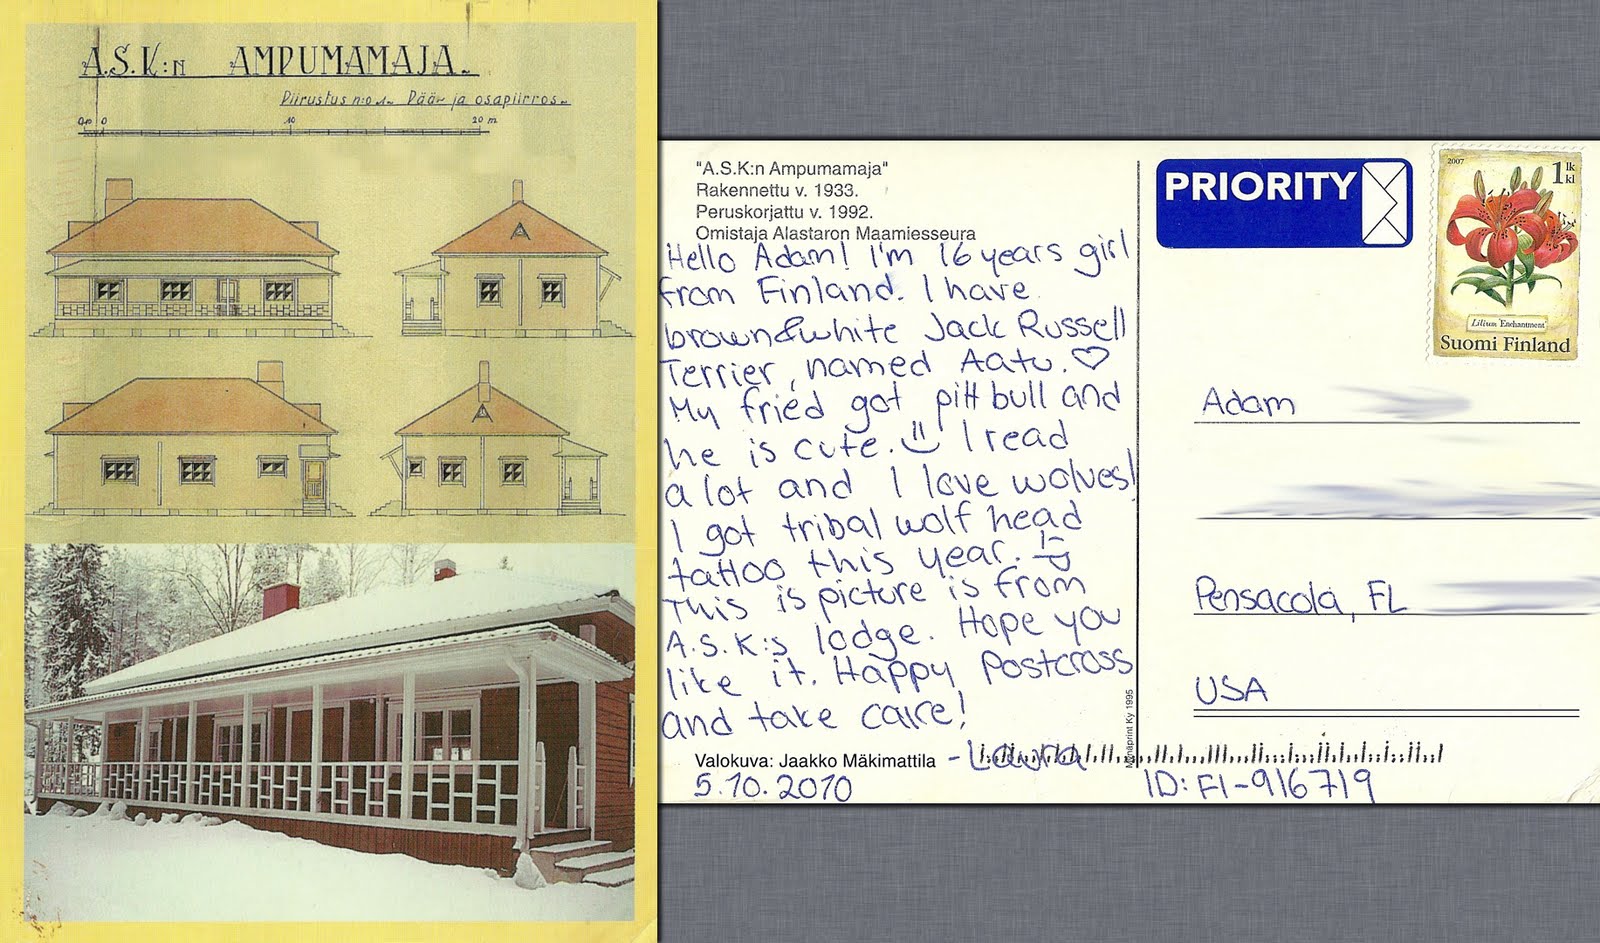 A.S.K:n AMPUMAMAJA.
Piirustus n:o 1. Pää- ja osapiirros.
0 10 20 m.
"A.S.K:n Ampumamaja"
Rakennettu v. 1933.
Peruskorjattu v. 1992.
Omistaja Alastaron Maamiesseura
Hello Adam! I'm 16 years girl
from Finland. I have
brown&white Jack Russell
Terrier, named Aatu. ♡
My fried got pitt bull and
he is cute. I read
a lot and I love wolves!
I got tribal wolf head
tattoo this year.
This is picture is from
A.S.K:s lodge. Hope you
like it. Happy Postcross
and take care!
-Laura
Valokuva: Jaakko Mäkimattila
5.10.2010
Ky 1995
PRIORITY
2007
1 lk
kl
Lilium 'Enchantment'
Suomi Finland
Adam
Pensacola, FL
USA
ID: FI-916719